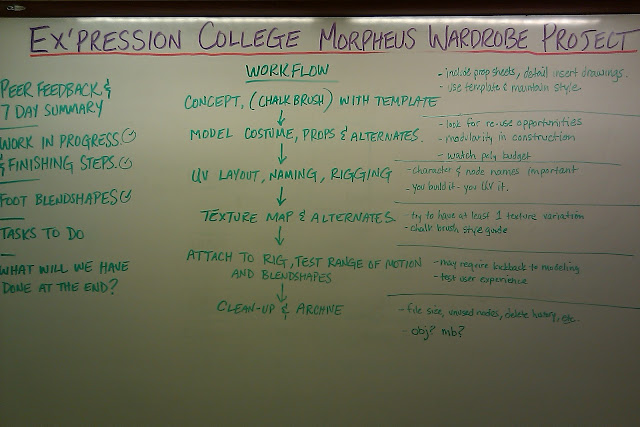 EX'PRESSION COLLEGE MORPHEUS WARDROBE PROJECT
PEER FEEDBACK &
7 DAY SUMMARY
WORK IN PROGRESS
& FINISHING STEPS.
FOOT BLENDSHAPES
TASKS TO DO
WHAT WILL WE HAVE
DONE AT THE END?
WORKFLOW
CONCEPT, (CHALKBRUSH) WITH TEMPLATE
MODEL COSTUME, PROPS & ALTERNATES.
UV LAYOUT, NAMING, RIGGING
TEXTURE MAP & ALTERNATES
ATTACH TO RIG, TEST RANGE OF MOTION
AND BLENDSHAPES
CLEAN-UP & ARCHIVE
- include prop sheets, detail insert drawings.
- use template & maintain style.
- look for re-use opportunities
- modularity in construction
- watch poly budget
- character & node names important
- you build it - you UV it.
- try to have at least 1 texture variation
- chalk brush style guide
- may require lookback to modeling
- test user experience
- file size, unused nodes, delete history, etc.
- obj? mb?